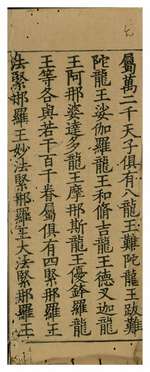 屬萬二千天子俱有八龍王難陀龍王跋難
陀龍王娑伽羅龍王和脩吉龍王德叉迦龍
王阿那婆達多龍王摩那斯龍王優鉢羅龍
王等各與若干百千眷屬俱有四緊那羅王
法緊那羅王妙法緊那羅王大法緊那羅王